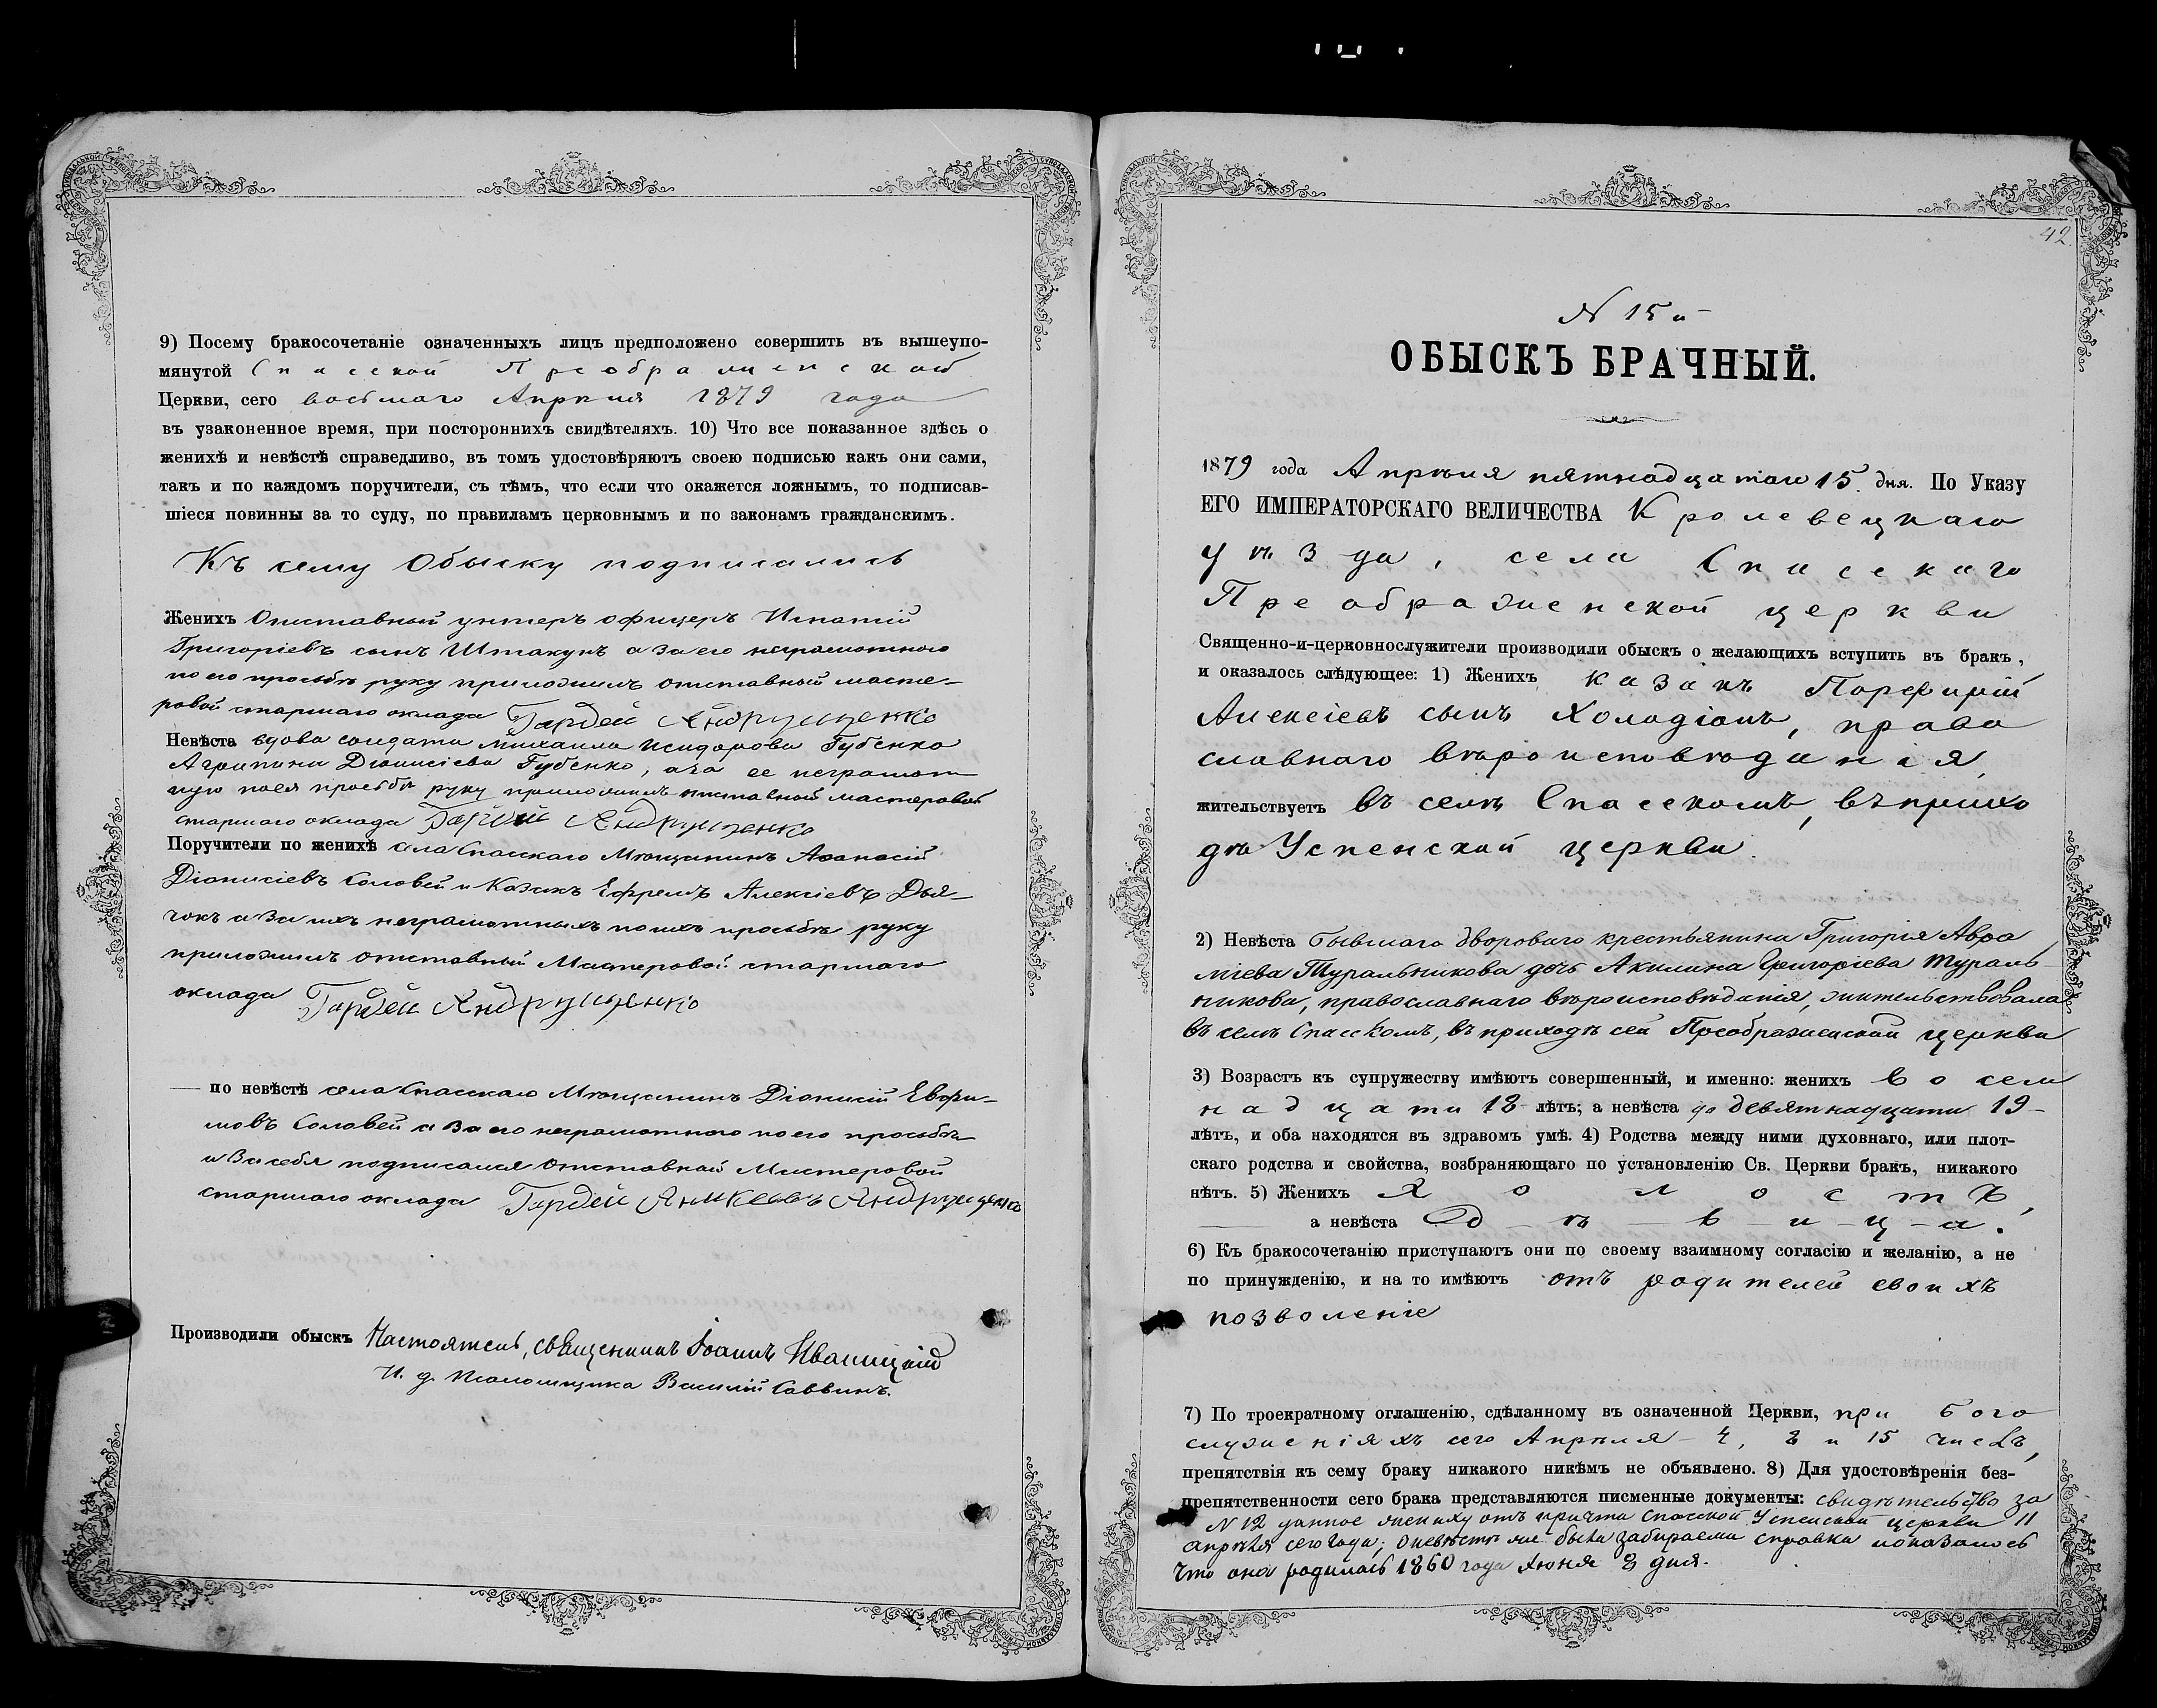 9) Посему бракосочетаніе означенныхъ лицъ предположено совершить въ вышеупо-
мянутой Спасской Преображенской
Церкви, сего восьмаго Апрѣля 1879 года
въ узаконенное время, при постороннихъ свидѣтеляхъ. 10) Что все показанное здѣсь о
женихѣ и невѣстѣ справедливо, въ томъ удостовѣряютъ своею подписью какъ они сами,
такъ и по каждомъ поручители, съ тѣмъ, что если что окажется ложнымъ, то подписав-
шіеся повинны за то суду, по правиламъ церковнымъ и по законамъ гражданскимъ.
Къ сему Обыску подписались
Женихъ Отставный унтеръ офицеръ Игнатій
Григоріевъ сынъ Штакунъ а за его неграмотного
по его просьбѣ руку приложилъ отставный масте-
ровой старшаго оклада Гордей Андрущенко
Невѣста вдова солдата Михаила Исидорова Губенко
Агрипина Діонисіева Губенко, а за ее неграмот
ную по ея просьбѣ руку приложилъ отставной мастеровой
старшаго оклада Гордей Андрущенко
Поручители по женихѣ села Спасскаго Мѣщанинъ Афанасій
Діонисіевъ Соловей и Казакъ Ефремъ Алексіевъ Дья-
чокъ а за ихъ неграмотныхъ по ихъ просьбѣ руку
приложилъ отставный Мастеровой старшаго
оклада Гордей Андрущенко
— по невѣстѣ села Спасскаго Мѣщанинъ Діонисій Евфи-
мовъ Соловей а за его неграмотного по его просьбѣ
и за себя подписался отставной Мастеровой
старшаго оклада Гордей Аникеевъ Андрущенко
Производили обыскъ Настоятель, священникъ Іоаннъ Иваницкій
И. д. псаломщика Василій Саввинъ.
42.
N 15й
ОБЫСКЪ БРАЧНЫЙ.
1879 года Апрѣля пятнадцатаго 15. дня. По Указу
ЕГО ИМПЕРАТОРСКАГО ВЕЛИЧЕСТВА Кролевецкаго
уѣзда, села Спасскаго
Преображенской церкви
Священно-и-церковнослужители производили обыскъ о желающихъ вступить въ бракъ,
и оказалось слѣдующее: 1) Женихъ казакъ Порфирій
Алексіевъ сынъ Холодіонъ, право
славнаго вѣроисповѣданія,
жительствуетъ въ селѣ Спасскомъ, въ прихо
дѣ Успенской церкви.
2) Невѣста бывшаго двороваго крестьянина Григорія Авра
міева Туральникова дочь Акилина Григоріева Тураль-
никова, православнаго вѣроисповѣданія, жительствовала
въ селѣ Спасскомъ, въ приходѣ сей Преображенской церкви
3) Возрастъ къ супружеству имѣютъ совершенный, и именно: женихъ восем
надцати 18 лѣтъ; а невѣста до девятнадцати 19-
лѣтъ, и оба находятся въ здравомъ умѣ. 4) Родства между ними духовнаго, или плот-
скаго родства и свойства, возбраняющаго по установленію Св. Церкви бракъ, никакого
нѣтъ. 5) Женихъ Холостъ,
а невѣста Дѣ-в-и-ц-а.
6) Къ бракосочетанію приступаютъ они по своему взаимному согласію и желанію, а не
по принужденію, и на то имѣютъ отъ родителей своихъ
позволеніе
7) По троекратному оглашенію, сдѣланному въ означенной Церкви, при бого
служеніяхъ сего Апрѣля 4, 8 и 15 числъ,
препятствія къ сему браку никакого никѣмъ не объявлено. 8) Для удостовѣренія без-
препятственности сего брака представляются писменные документы: свидѣтельство за
N 12 данное жениху отъ причта Спасской Успенской церкви 11
апрѣля сего года; о невѣстѣ же была забираема справка показалось
что она родилась 1860 года Июня 8 дня.